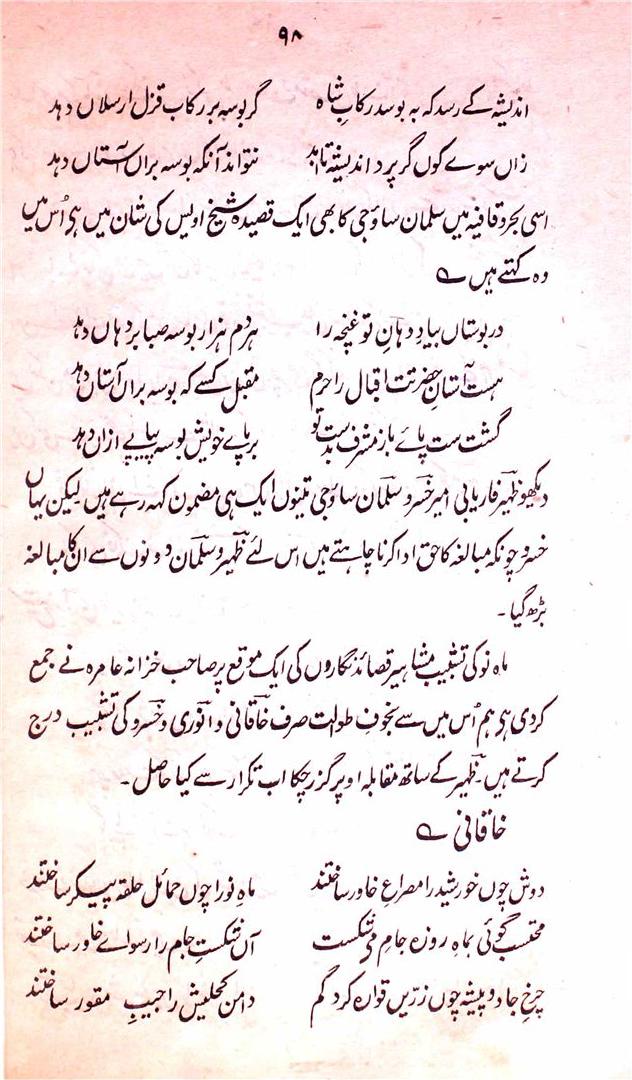 ۹۸
اندیشہ کے رسد کہ بہ بوسد رکابِ شاہ گر بوسہ بر رکاب قزل ارسلاں دہد
زاں سوے کوں گر پرد اندیشہ تا بد نتواند آنکہ بوسہ براں آستاں دہد
اسی بحر و قافیہ میں سلمان ساؤجی کا بھی ایک قصیدہ شیخ اویس کی شان میں ہی اُس میں
وہ کہتے ہیں ے
در بوستاں بیادِ دہانِ تو غنچہ را ہر دم ہزار بوسہ صبا بر دہاں دہد
ہست آستانِ حضرتت اقبال را حرم مقبل کسے کہ بوسہ براں آستاں دہد
گشت ست پائے باز مشرف بدست تو بر پاے خویش بوسہ پیاپے ازاں دہد
دیکھو ظہیر فاریابی امیر خسرو سلمان ساؤجی تینوں ایک ہی مضمون کہہ رہے ہیں لیکن یہاں
خسرو چونکہ مبالغہ کا حق ادا کرنا چاہتے ہیں اس لئے ظہیر و سلمان دونوں سے ان کا مبالغہ
بڑھ گیا۔
ماہ نو کی تشبیب مشاہیر قصائد نگاروں کی ایک موقع پر صاحب خزانہ عامرہ نے جمع
کردی ہی ہم اُس میں سے بخوفِ طوالت صرف خاقانی و انوری و خسرو کی تشبیب درج
کرتے ہیں۔ ظہیر کے ساتھ مقابلہ اوپر گزر چکا اب تکرار سے کیا حاصل۔
خاقانی ے
دوش چوں خورشید را مصراعِ خاور ساختند ماہِ نو را چوں حمائل حلقہ پیکر ساختند
محتسب گوئی بماہِ روزہ جامِ می شکست آں شکستِ جام را رسوا ے خاور ساختند
چرخِ جادو پیشہ چوں زرّیں قوارہ کرد گم دامن کحلیش را جیبِ مقور ساختند